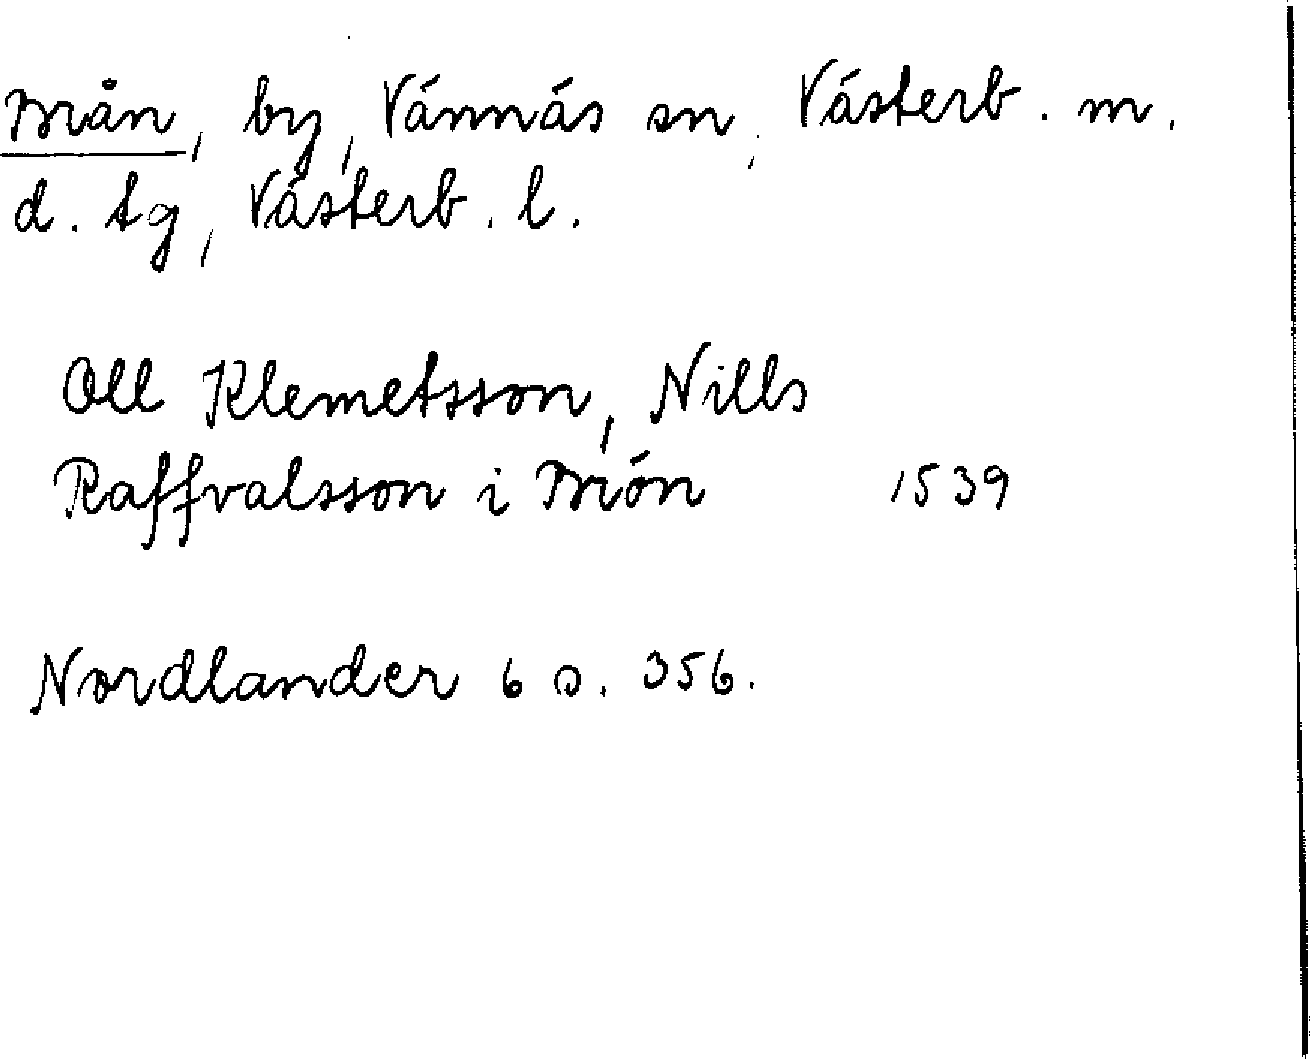 Brån, by, Vännäs sn, Västerb. m.
d. tg, Västerb. l.
Oll Klemetsson, Nills
Raffvalsson i Brön 1539
Nordlander 6 s. 356.